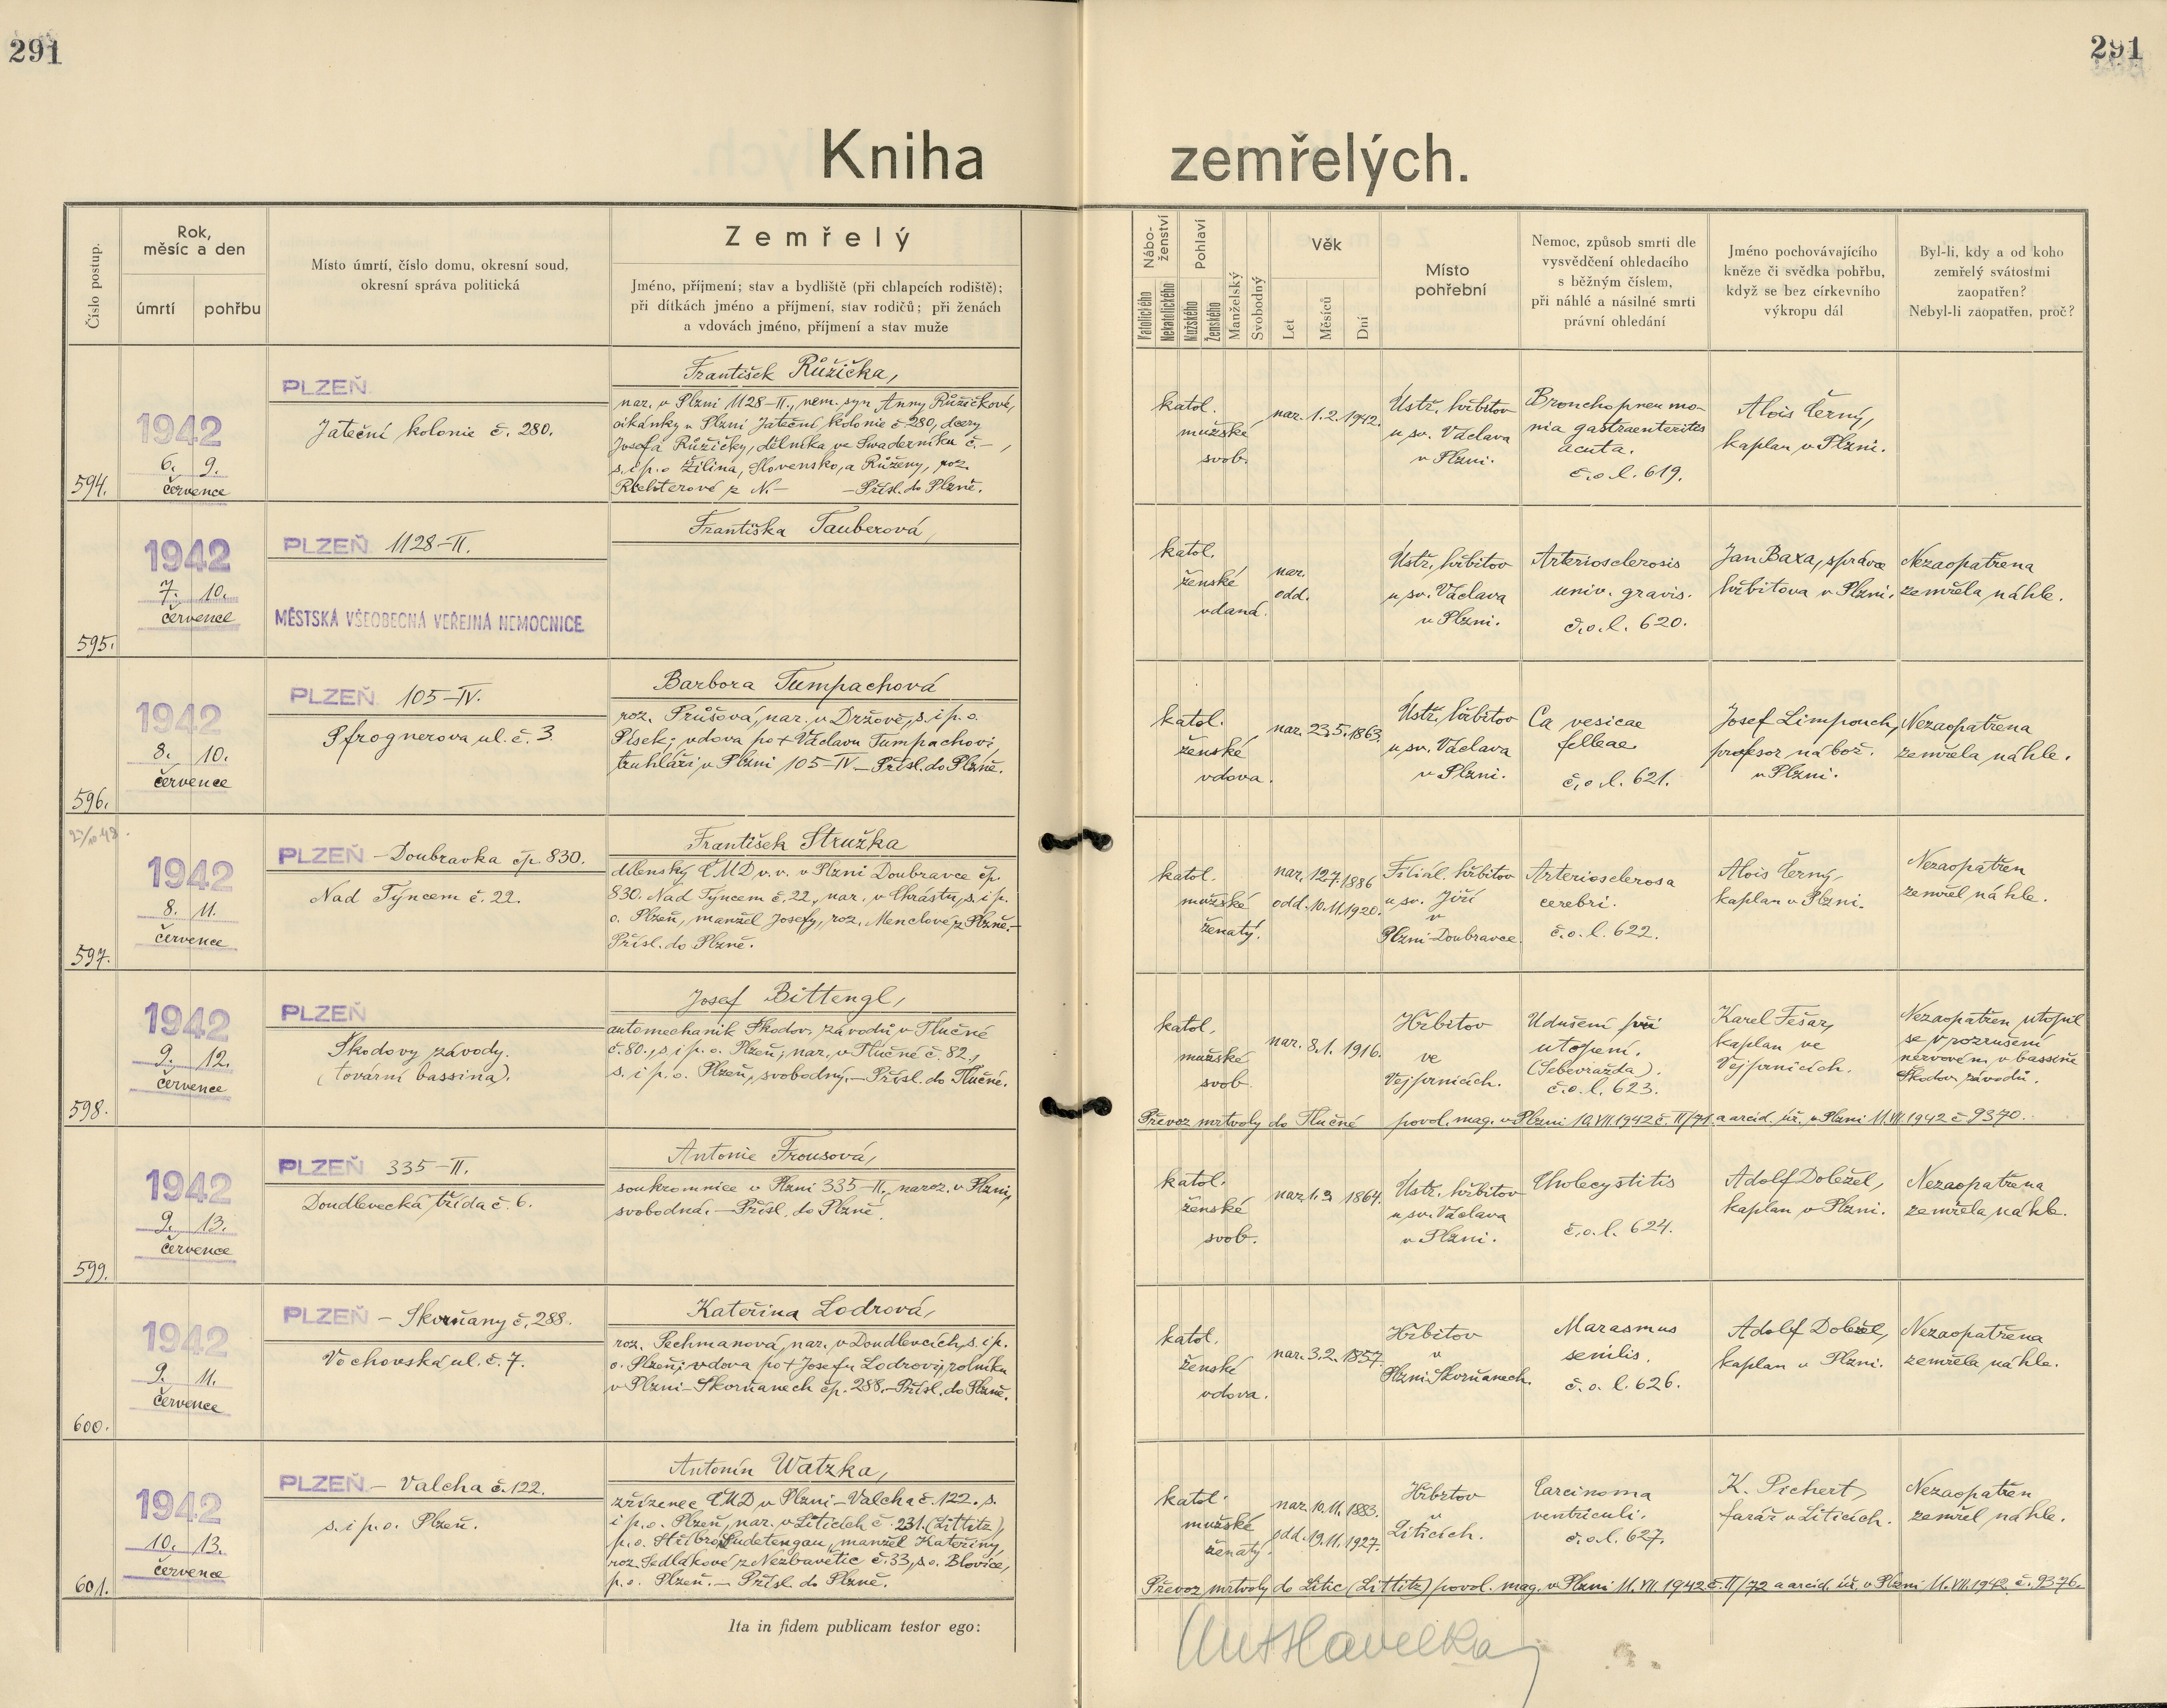 291
291
Kniha zemřelých.
Číslo postup.
Rok, měsíc a den
úmrtí
pohřbu
Místo úmrtí, číslo domu, okresní soud,
okresní správa politická
Zemřelý
Jméno, příjmení; stav a bydliště (při chlapcích rodiště);
při dítkách jméno a příjmení, stav rodičů; při ženách
a vdovách jméno, příjmení a stav muže
Nábo-
ženství
Katolického
Nekatolického
Pohlaví
Mužského
Ženského
Manželský
Svobodný
Věk
Let
Měsíců
Dní
Místo
pohřební
Nemoc, způsob smrti dle
vysvědčení ohledacího
s běžným číslem,
při náhlé a násilné smrti
právní ohledání
Jméno pochovávajícího
kněze či svědka pohřbu,
když se bez církevního
výkropu dál
Byl-li, kdy a od koho
zemřelý svátostmi
zaopatřen?
Nebyl-li zaopatřen, proč?
594.
1942
6. 9.
července
PLZEŇ
Jateční kolonie č. 280.
František Růžička,
nar. v Plzni 1128-II., nem. syn Anny Růžičkové,
cikánky v Plzni Jateční kolonie č. 280, dcery
Josefa Růžičky, dělníka ve Swaderníku č. –,
s. i p. o Žilina, Slovensko, a Růženy, roz.
Richterové z N. – – Přísl. do Plzně.
katol.
mužské
svob.
nar. 1. 2. 1942.
Ústř. hřbitov
u sv. Václava
v Plzni.
Bronchopneumo-
nia gastraenteritis
acuta.
č. o. l. 619.
Alois Černý,
kaplan v Plzni.
595.
1942
7. 10.
července
PLZEŇ 1128-II.
MĚSTSKÁ VŠEOBECNÁ VEŘEJNÁ NEMOCNICE
Františka Tauberová,
katol.
ženské
vdaná.
nar.
odd.
Ústř. hřbitov
u sv. Václava
v Plzni.
Arteriosclerosis
univ. gravis.
č. o. l. 620.
Jan Baxa, správce
hřbitova v Plzni.
Nezaopatřena
zemřela náhle.
596.
1942
8. 10.
července
PLZEŇ 105-IV.
Pfrognerova ul. č. 3
Barbora Tumpachová
roz. Průšová, nar. v Držově, s. i p. o.
Písek; vdova po + Václavu Tumpachovi,
truhláři v Plzni 105-IV – Přísl. do Plzně.
katol.
ženské
vdova.
nar. 23. 5. 1863.
Ústř. hřbitov
u sv. Václava
v Plzni.
Ca vesicae
felleae
č. o. l. 621.
Josef Limpouch,
profesor nábož.
v Plzni.
Nezaopatřena
zemřela náhle.
597.
1942
8. 11.
července
PLZEŇ – Doubravka čp. 830.
Nad Týncem č. 22.
František Stružka
dílenský ČMD v. v. v Plzni Doubravce čp.
830. Nad Týncem č. 22, nar. v Chrástu, s. i p.
o. Plzeň, manžel Josefy, roz. Menclové z Plzně. –
Přísl. do Plzně.
katol.
mužské
ženatý.
nar. 12.7.1886
odd. 10.11.1920.
Filiál. hřbitov
u sv. Jiří
v
Plzni-Doubravce.
Arteriosclerosa
cerebri.
č. o. l. 622.
Alois Černý,
kaplan v Plzni.
Nezaopatřen
zemřel náhle.
598.
1942
9. 12.
července
PLZEŇ
Škodovy závody.
(tovární bassina).
Josef Bittengl,
automechanik Škodov. závodů v Tlučné
č. 80., s. i p. o. Plzeň, nar. v Tlučné č. 82.,
s. i p. o. Plzeň, svobodný. – Přísl. do Tlučné.
katol.
mužské
svob.
nar. 8. 1. 1916.
Hřbitov
ve
Vejprnicích.
Udušení při
utopení.
(Sebevražda).
č. o. l. 623.
Karel Fešar,
kaplan ve
Vejprnicích.
Nezaopatřen utopil
se v rozrušení
nervovém, v bassině
Škodov. závodů.
Převoz mrtvoly do Tlučné povol. mag. v Plzni 10.VII.1942 č. II/71. a arcid. úř. v Plzni 11.VII.1942 č 9370.
599.
1942
9. 13.
července
PLZEŇ 335-II.
Doudlevecká třída č. 6.
Antonie Trousová,
soukromnice v Plzni 335-II., naroz. v Plzni,
svobodná. – Přísl. do Plzně.
katol.
ženské
svob.
1864.
Ústř. hřbitov
u sv. Václava
v Plzni.
Cholecystitis
č. o. l. 624.
Adolf Doležel,
kaplan v Plzni.
Nezaopatřena
zemřela náhle.
600.
1942
9. 11.
července
PLZEŇ – Skvrňany č. 288.
Vochovská ul. č. 7.
Kateřina Lodrová,
roz. Pechmanová, nar. v Doudlevcích, s. i p.
o. Plzeň; vdova po + Josefu Lodrovi, rolníku
v Plzni – Skvrňanech čp. 288. – Přísl. do Plzně.
katol.
ženské
vdova.
nar. 3. 2. 1857.
Hřbitov
v
Plzni-Skvrňanech.
Marasmus
senilis.
č. o. l. 626.
Adolf Doležel,
kaplan v Plzni.
Nezaopatřena
zemřela náhle.
601.
1942
10. 13.
července
PLZEŇ – Valcha č. 122.
s. i p. o. Plzeň.
Antonín Watzka,
zřízenec ČMD v Plzni – Valcha č. 122. s.
i p. o. Plzeň, nar. v Liticích č. 231. (Littitz),
p. o. Stříbro, Sudetengau, manžel Kateřiny,
roz. Sedlákové z Nezbavětic č. 33, s. o. Blovice,
p. o. Plzeň. – Přísl. do Plzně.
katol.
mužské
ženatý.
nar. 10. 11. 1883.
odd. 19. 11. 1927.
Hřbitov
v
Liticích.
Carcinoma
ventriculi.
č. o. l. 627.
K. Pichert,
farář v Liticích.
Nezaopatřen
zemřel náhle.
Převoz mrtvoly do Litic (Littitz) povol. mag. v Plzni 11.VII.1942 č. II/72 a arcid. úř. v Plzni 11.VII.1942 č. 9376.
Ita in fidem publicam testor ego:
Ant Havelka